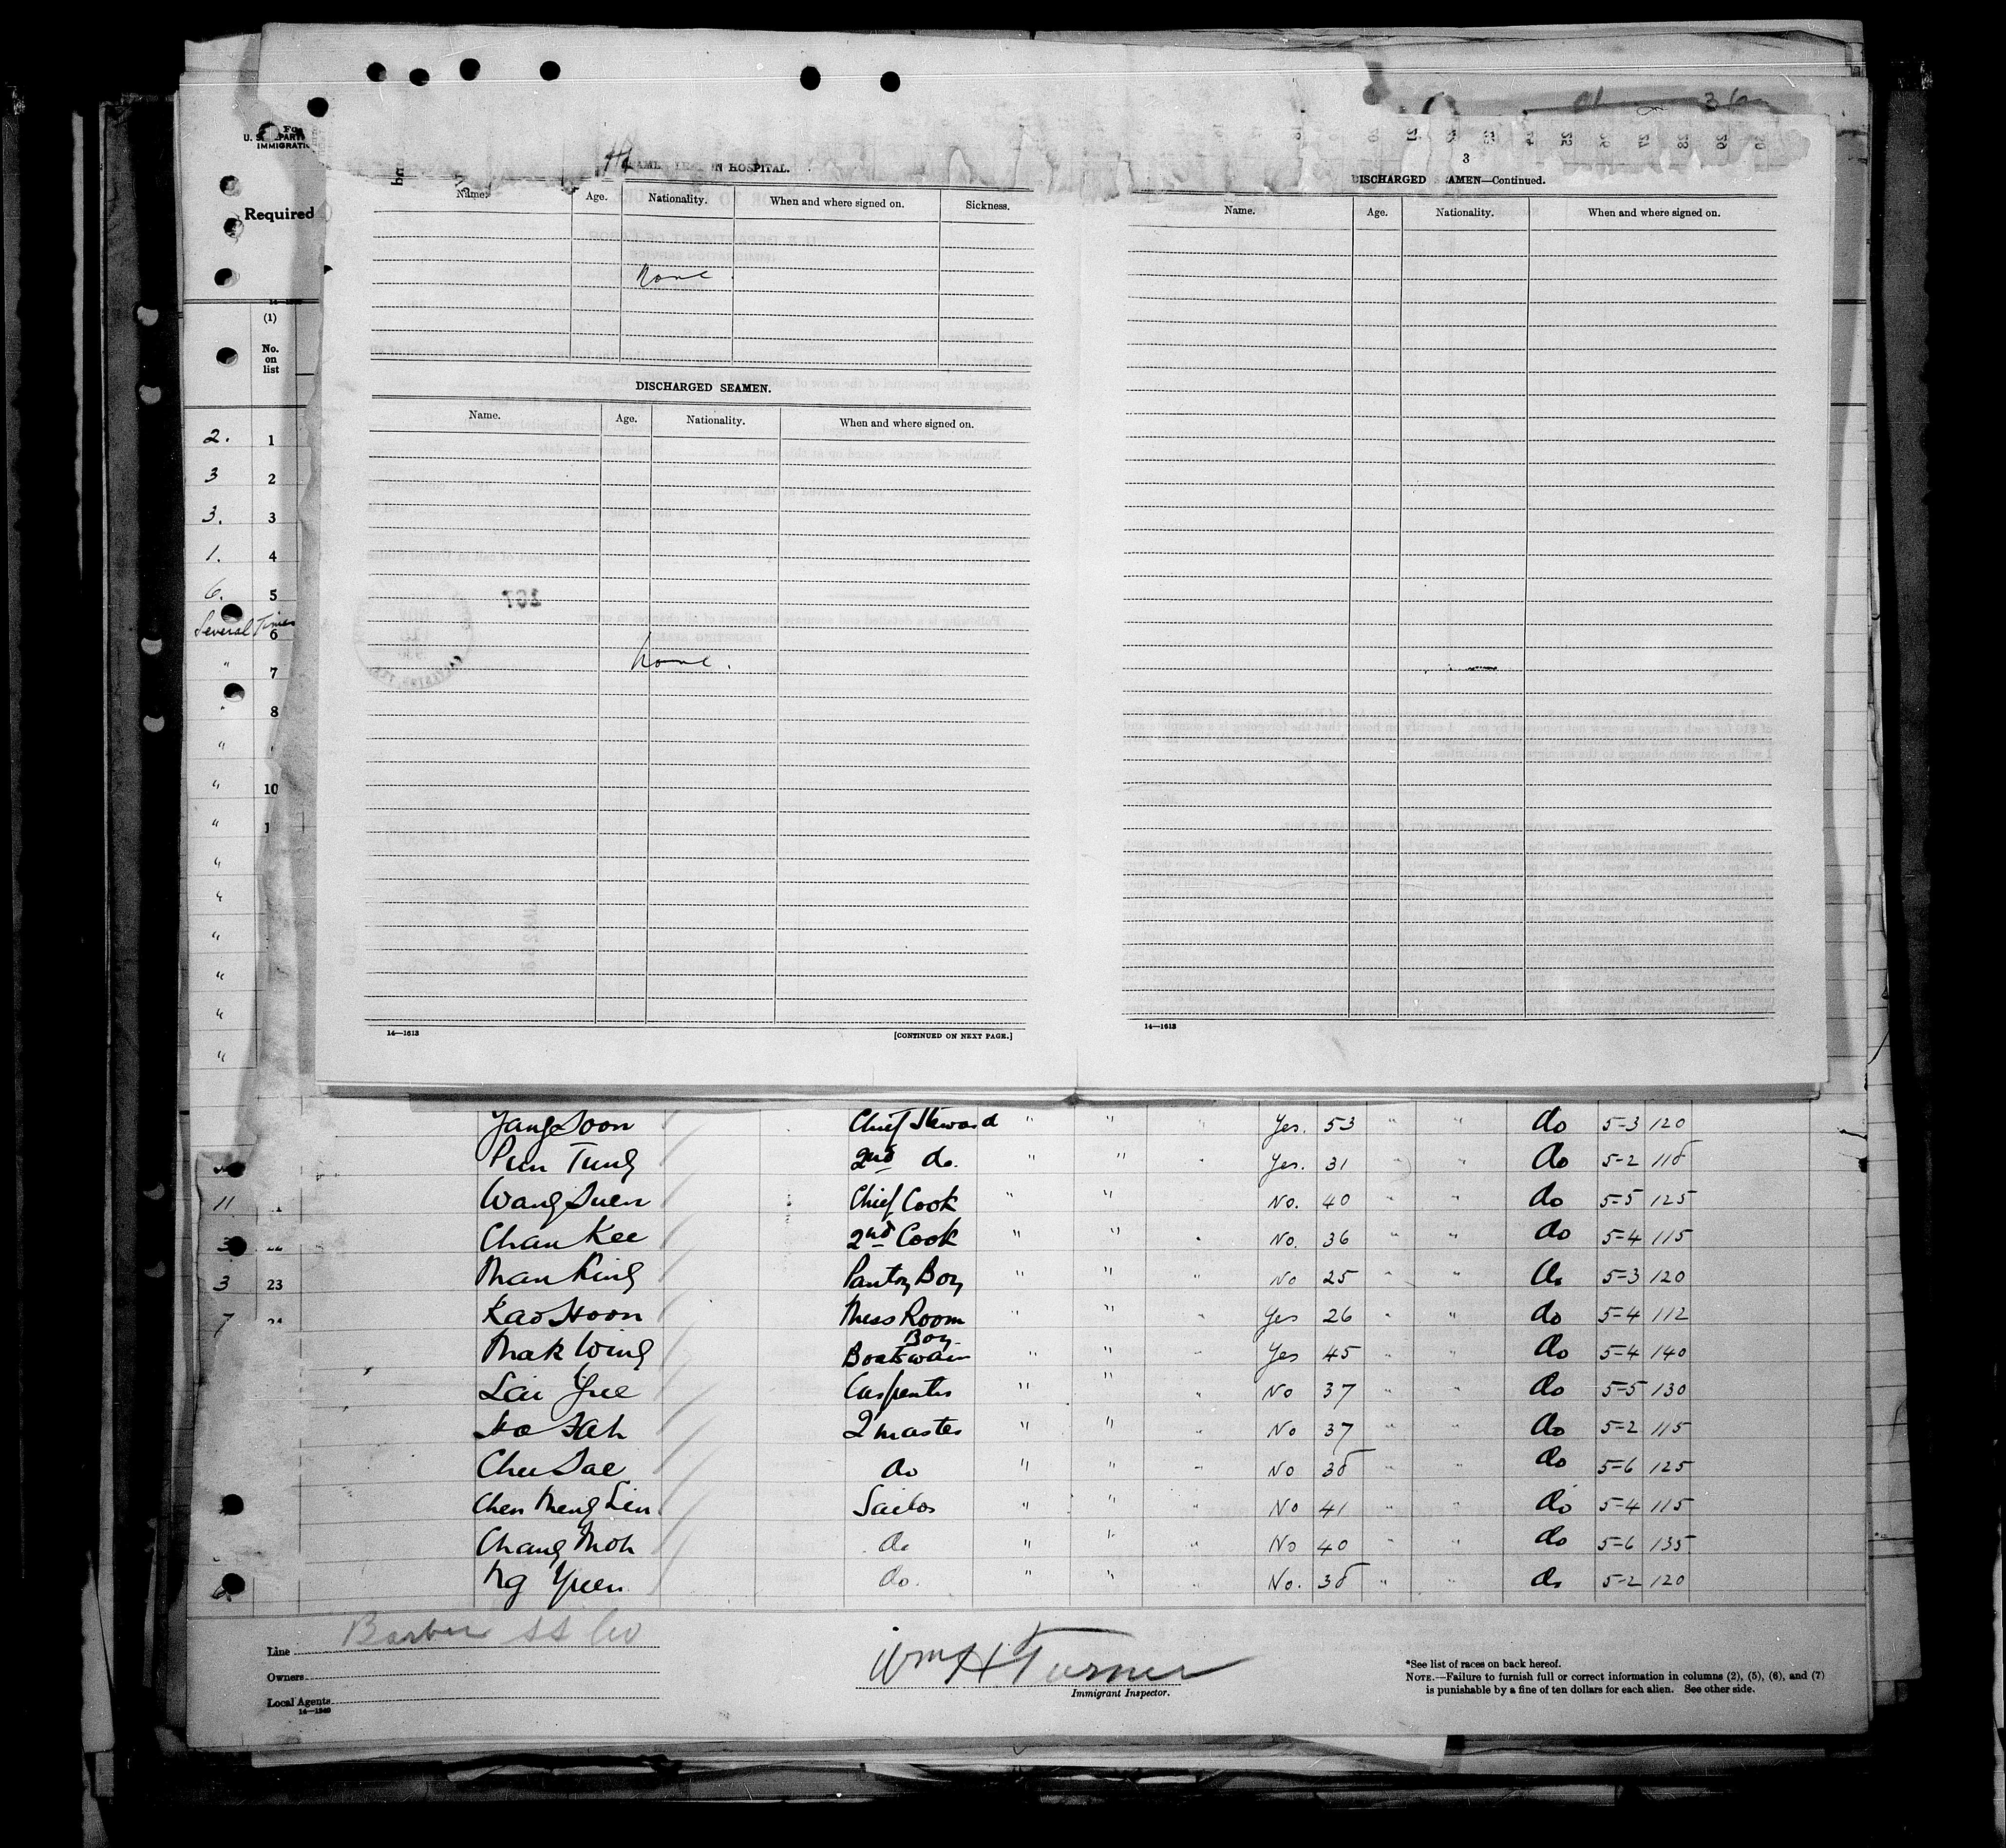 U. S.
IMMIGRATI
Required
(1)
No.
on
list
2. 1
3 2
3. 3
1. 4
6. 5
Several Times 6
" 7
" 8
"
" 10
"
"
"
"
"
"
"
N HOSPITAL.
Name. Age. Nationality. When and where signed on. Sickness.
None
DISCHARGED SEAMEN.
Name. Age. Nationality. When and where signed on.
None.
14—1613 [CONTINUED ON NEXT PAGE.]
3
DISCHARGED SEAMEN—Continued.
Name. Age. Nationality. When and where signed on.
14—1613
Yang Soon Chief Steward " " " Yes. 53 " " do 5-3 120
Pun Tung 2nd do. " " " Yes. 31 " " do 5-2 118
11 Wang Suen Chief Cook " " " No. 40 " " do 5-5 125
3 Chan Kee 2nd Cook " " " No. 36 " " do 5-4 115
3 23 Man King Pantry Boy " " " No 25 " " do 5-3 120
7 Kao Hoon Mess Room Boy " " " Yes 26 " " do 5-4 112
Mak Wing Boatswain " " " Yes 45 " " do 5-4 140
Lai Yue Carpenter " " " No 37 " " do 5-5 130
Ho Fah Qmaster " " " No 37 " " do 5-2 115
Chu Sae do " " " No 38 " " do 5-6 125
Chen Meng Lin Sailor " " " No 41 " " do 5-4 115
Chang Moh do " " " No 40 " " do 5-6 135
6. Ng Yuen do. " " " No. 38 " " do 5-2 120
Line Barber SS Co
Owners
Local Agents
14—1240
Wm H Turner
Immigrant Inspector.
*See list of races on back hereof.
NOTE.—Failure to furnish full or correct information in columns (2), (5), (6), and (7)
is punishable by a fine of ten dollars for each alien. See other side.